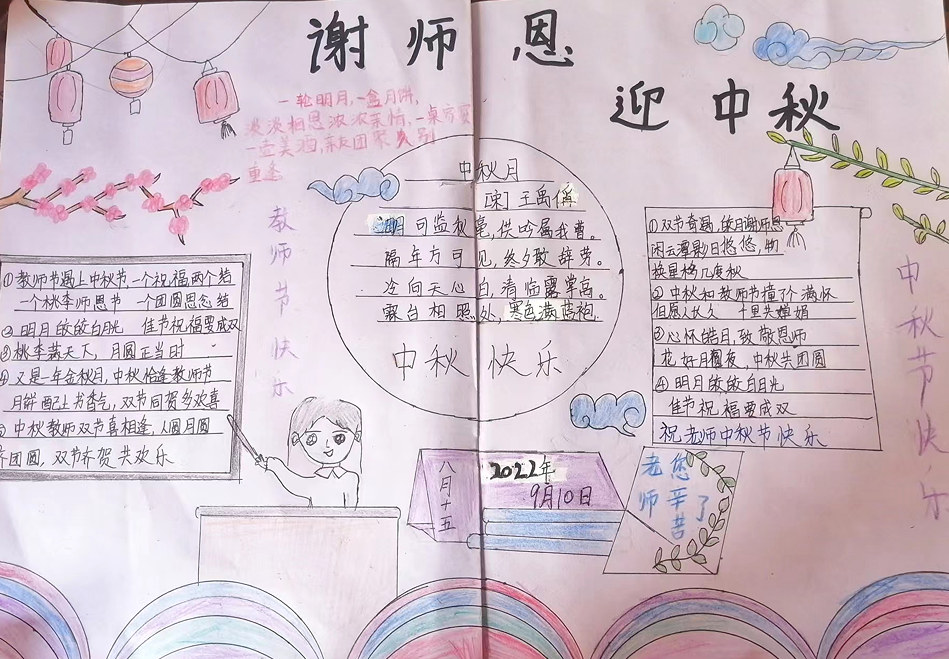 谢师恩
迎中秋
一轮明月,一盒月饼,
淡淡相思浓浓亲情,一桌方宴
一壶美酒,亲友团聚久别
重逢
教师节快乐
①教师节遇上中秋节一个祝福两个结
一个桃李师恩节 一个团圆思念结
②明月皎皎白月光 佳节祝福要成双
③桃李满天下,月圆正当时
④又是一年金秋月,中秋恰逢教师节
月饼配上书香气,双节同贺多欢喜
⑤中秋教师双节喜相逢,人圆月圆
齐团圆,双节齐贺共欢乐
中秋月
[宋]王禹偁
明可监秋毫,供吟属我曹。
隔年方可见,终夕敢辞劳。
冷向天心白,清临露掌高。
霖台相照处,寒色满蓝袍
中秋快乐
①双节奇遇,皓月谢师恩
闲云潭影日悠悠,物
换星移几度秋
②中秋和教师节撞了个满怀
但愿人长久 千里共婵娟
③心怀皓月,致敬恩师
花好月圆夜,中秋共团圆
④明月皎皎白月光
佳节祝福要成双
祝老师中秋节快乐
中秋节快乐
八月十五
2022年
9月10日
老师
您辛苦了